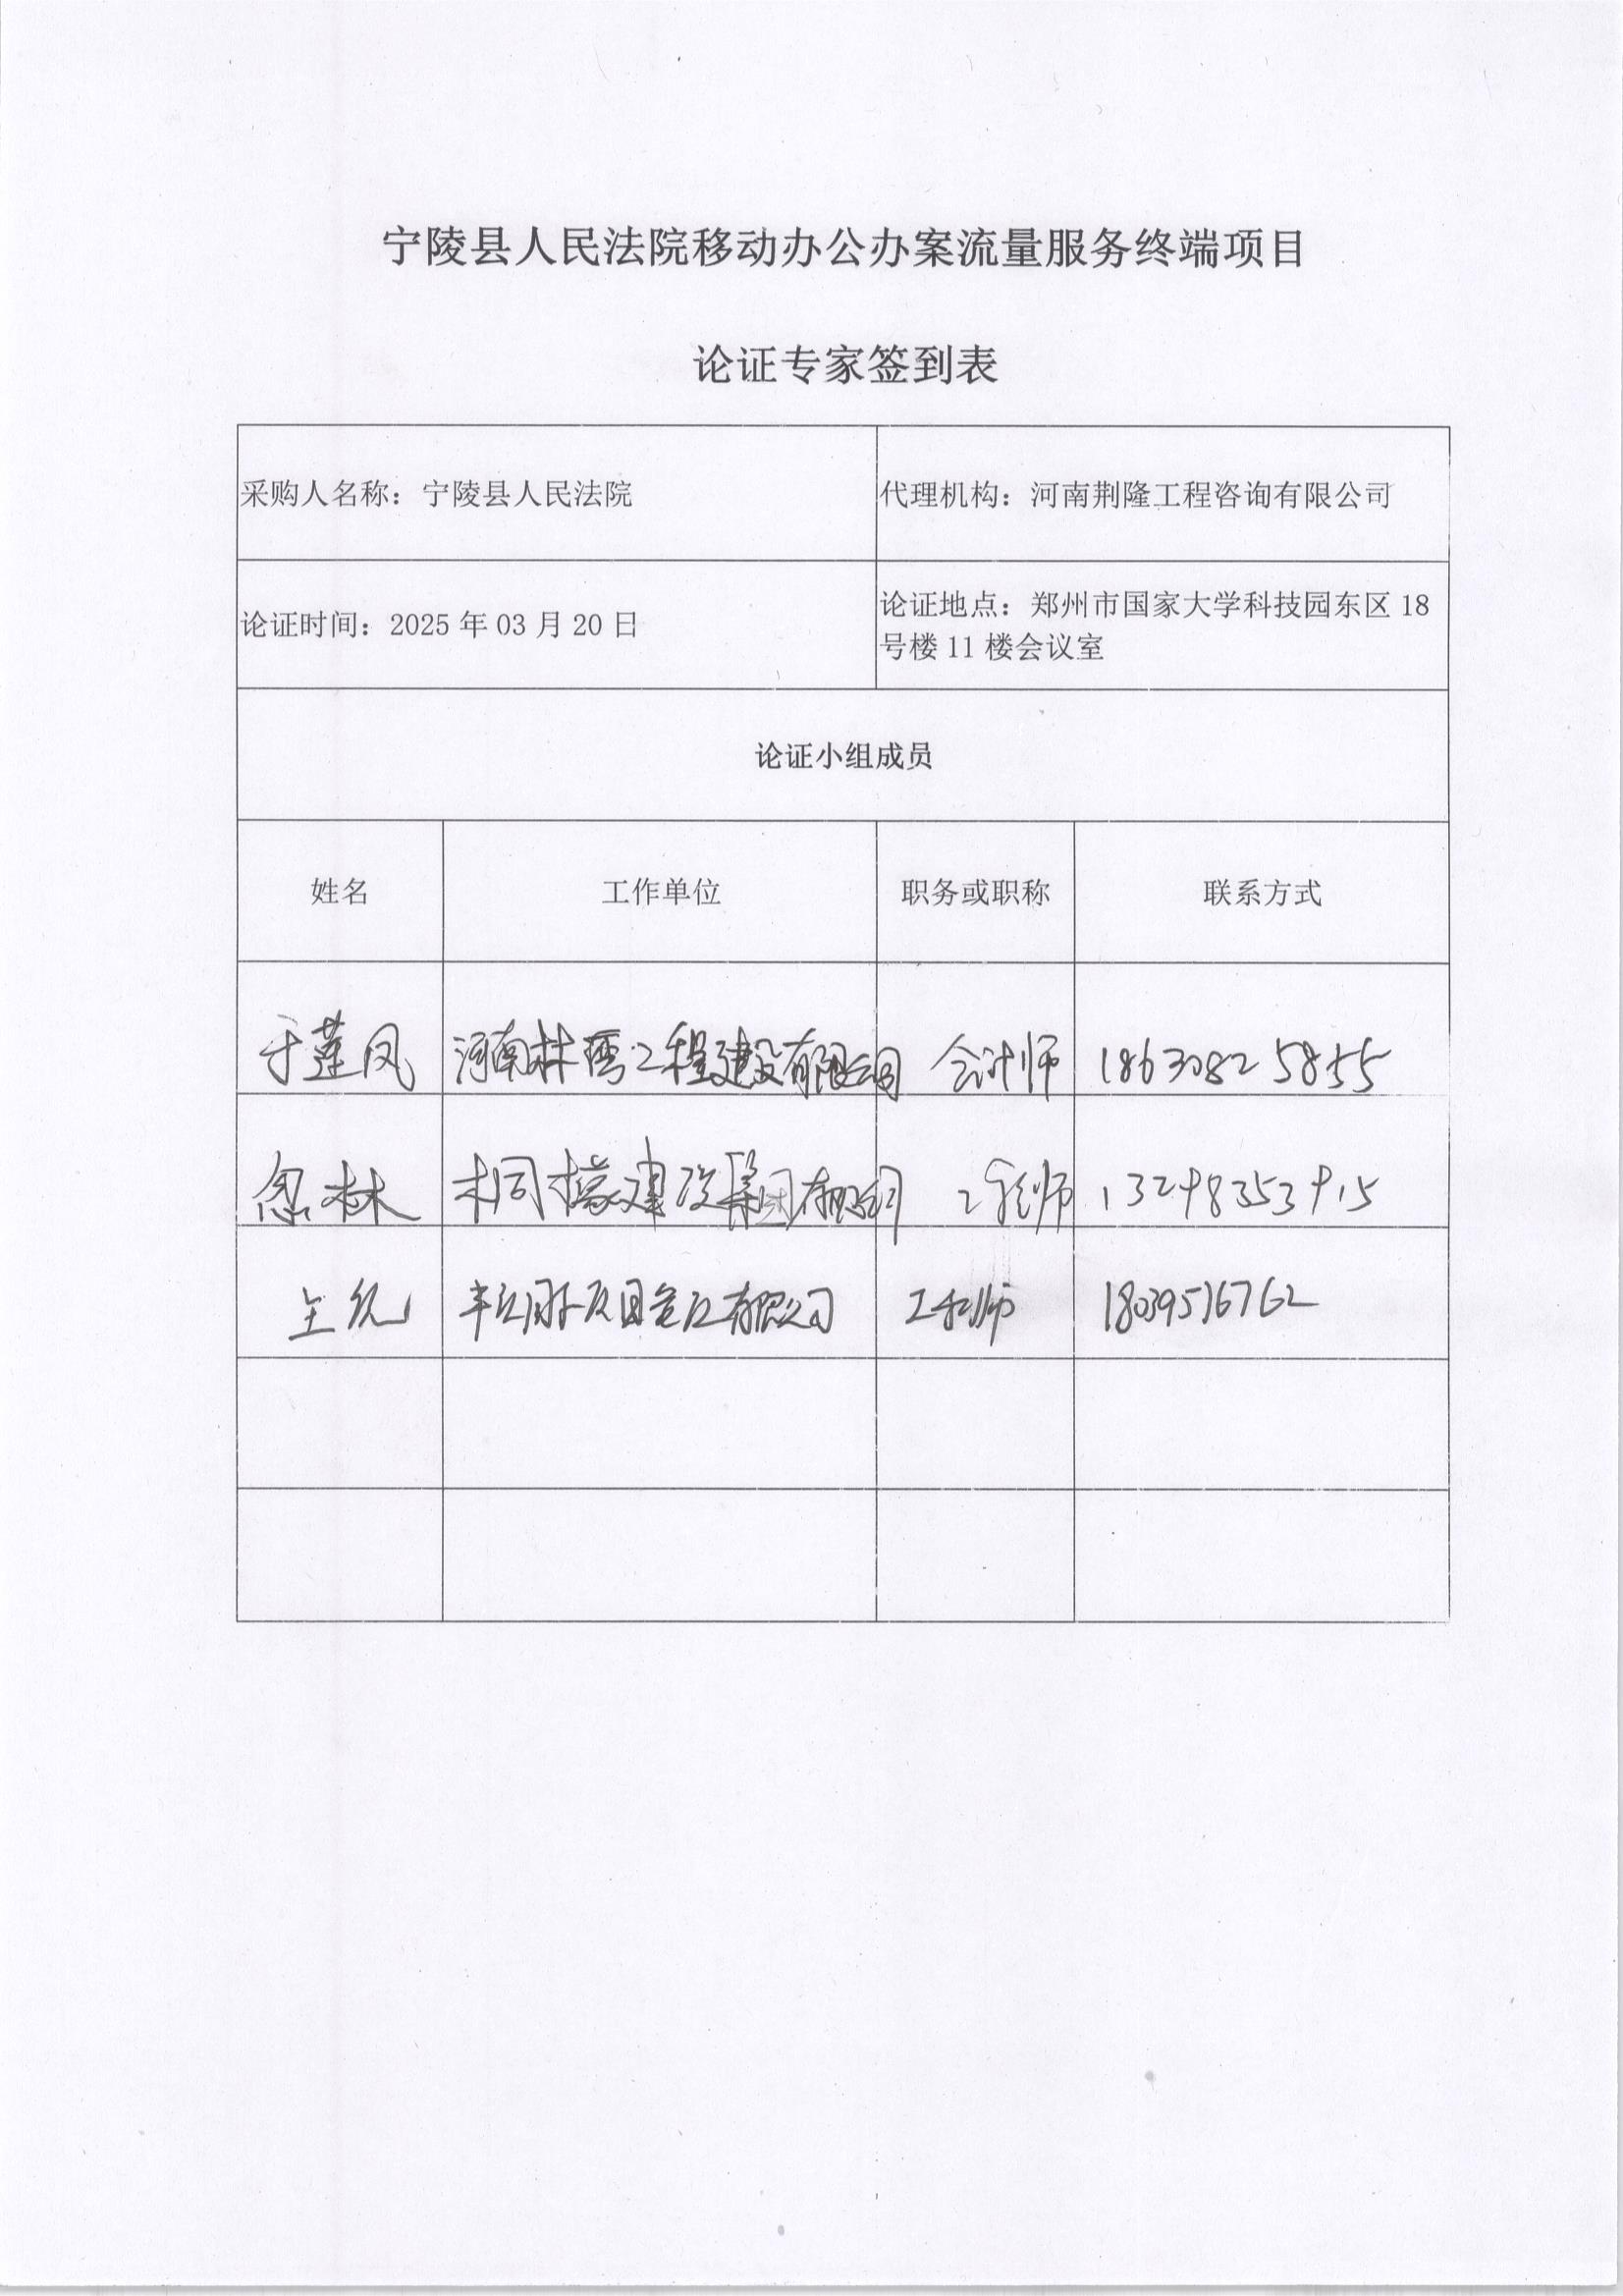 宁陵县人民法院移动办公办案流量服务终端项目
论证专家签到表
采购人名称：宁陵县人民法院 代理机构：河南荆隆工程咨询有限公司
论证时间：2025 年 03 月 20 日 论证地点：郑州市国家大学科技园东区 18
号楼 11 楼会议室
论证小组成员
姓名 工作单位 职务或职称 联系方式
于莲凤 河南林湾工程建设有限公司 会计师 18630825855
忽林 桐檬建设集团有限公司 工程师 13298353915
有限公司 工程师 18039516762